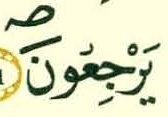 يَرْجِعُونَ ۖ